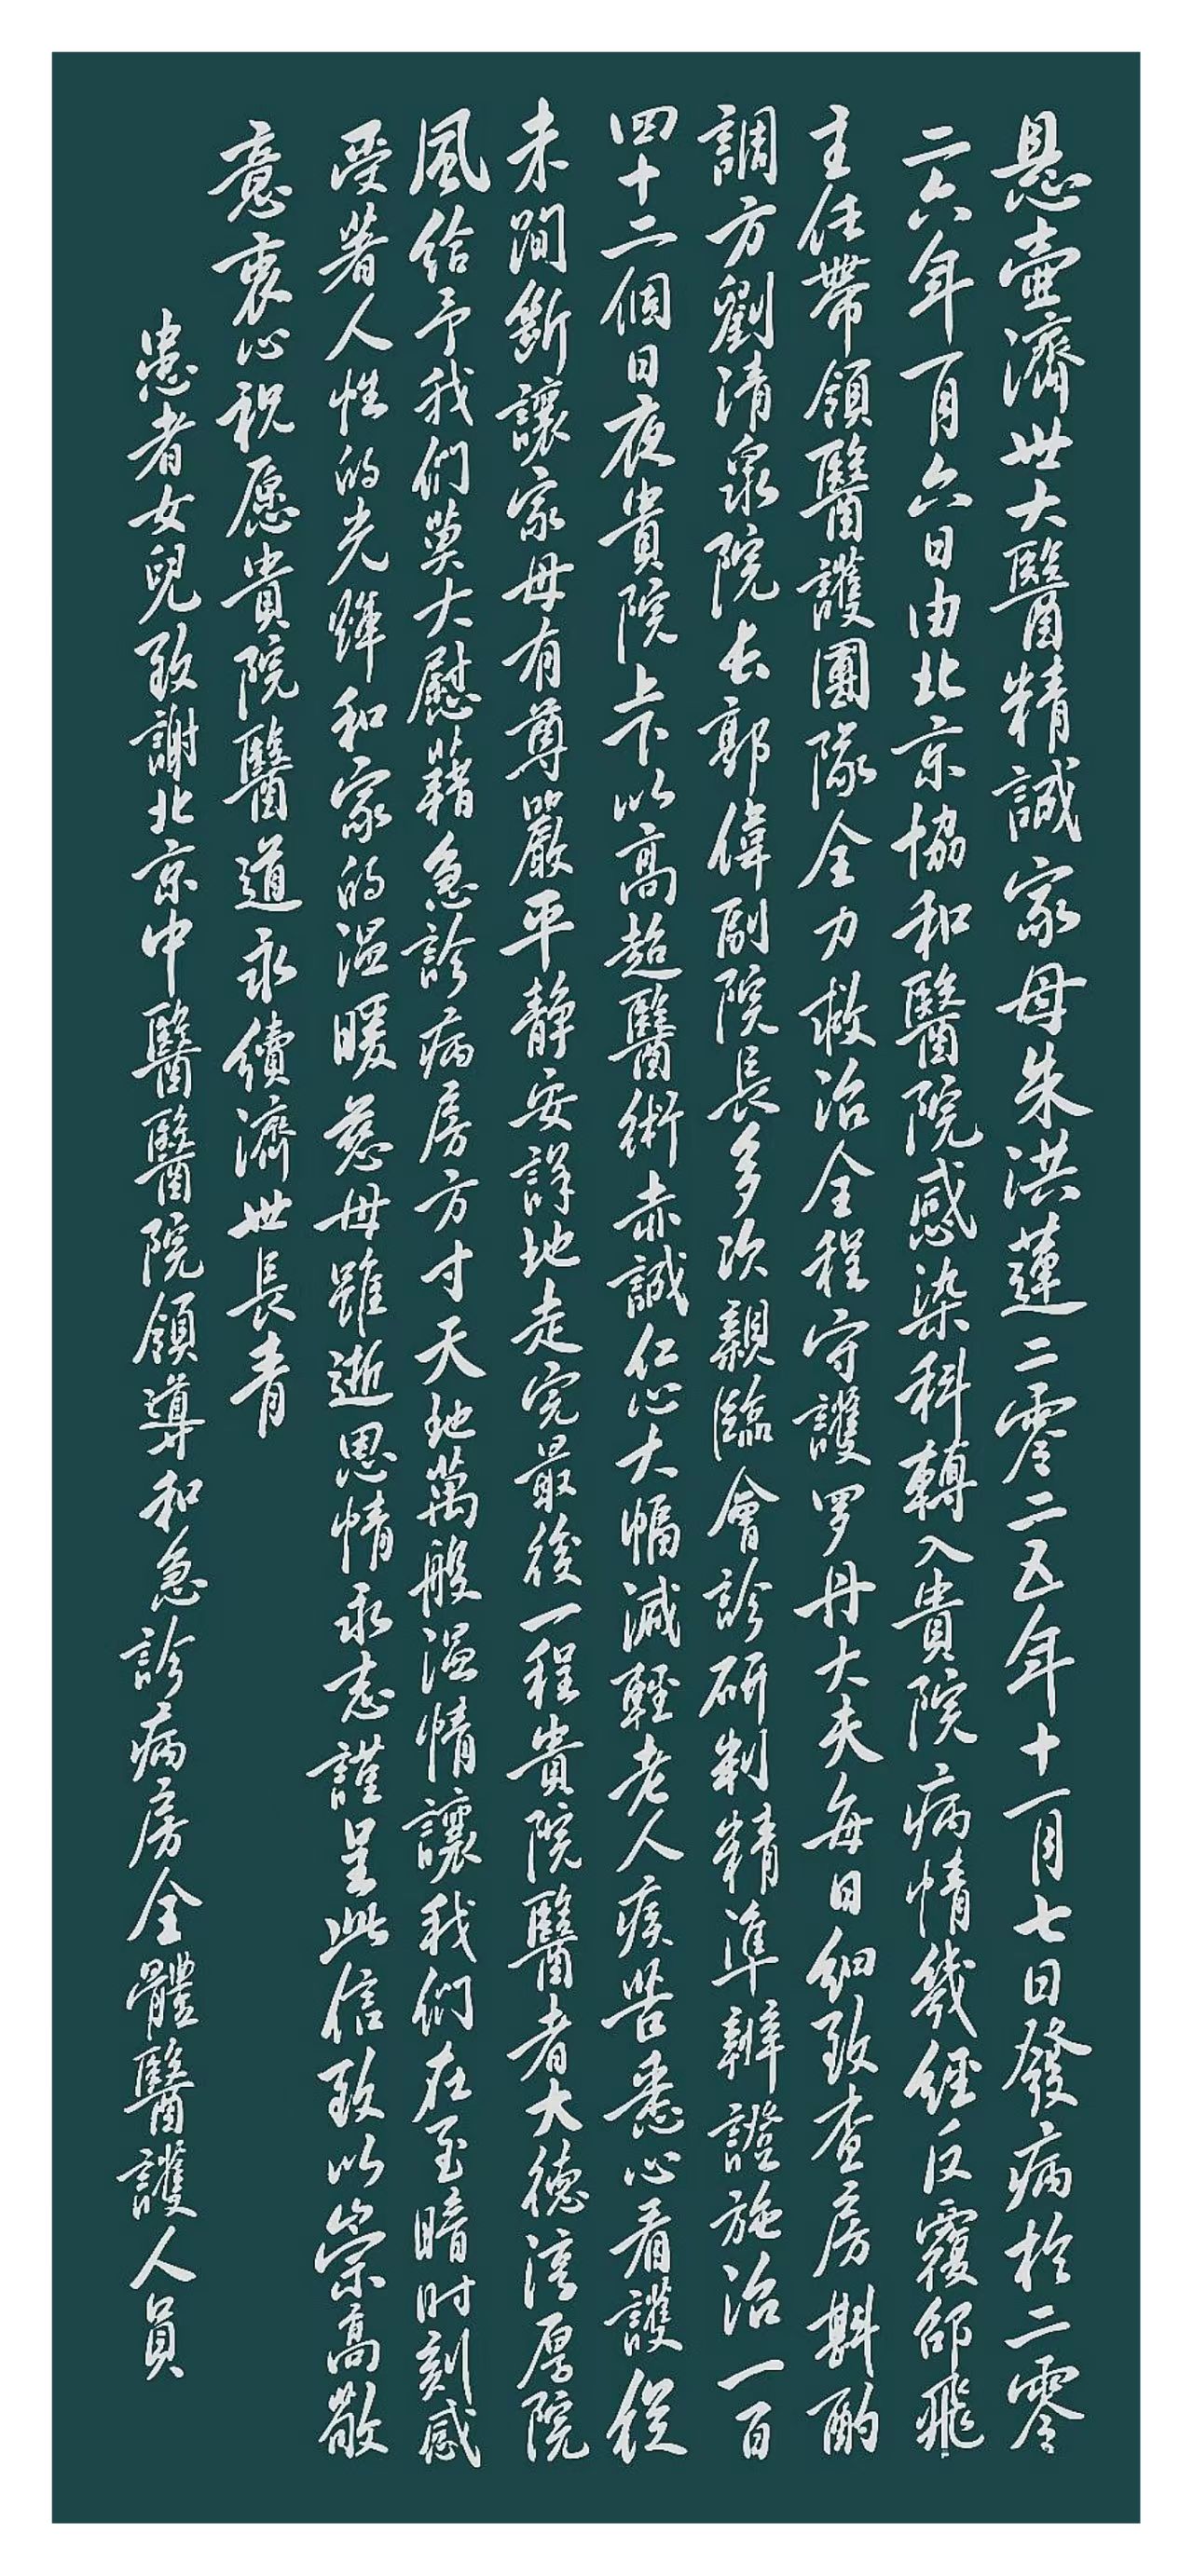 懸壺濟世大醫精誠家母朱洪蓮二零二五年十一月七日發病於二零
二六年一月六日由北京協和醫院感染科轉入貴院病情幾經反覆邰飛
主任帶領醫護團隊全力救治全程守護罗丹大夫每日細致查房斟酌
調方劉清泉院长郭偉副院長多次親臨會診研制精準辨證施治一百
四十二個日夜貴院上下以高超醫術赤誠仁心大幅減輕老人痰苦悉心看護從
未間斷讓家母有尊嚴平静安詳地走完最後一程貴院醫者大德淳厚院
風給予我們莫大慰藉急診病房方寸天地萬般溫情讓我們在至暗时刻感
受著人性的光輝和家的溫暖慈母雖逝恩情永志謹呈此信致以崇高敬
意衷心祝愿貴院醫道永續濟世長青
患者女兒致謝北京中醫醫院領導和急診病房全體醫護人員